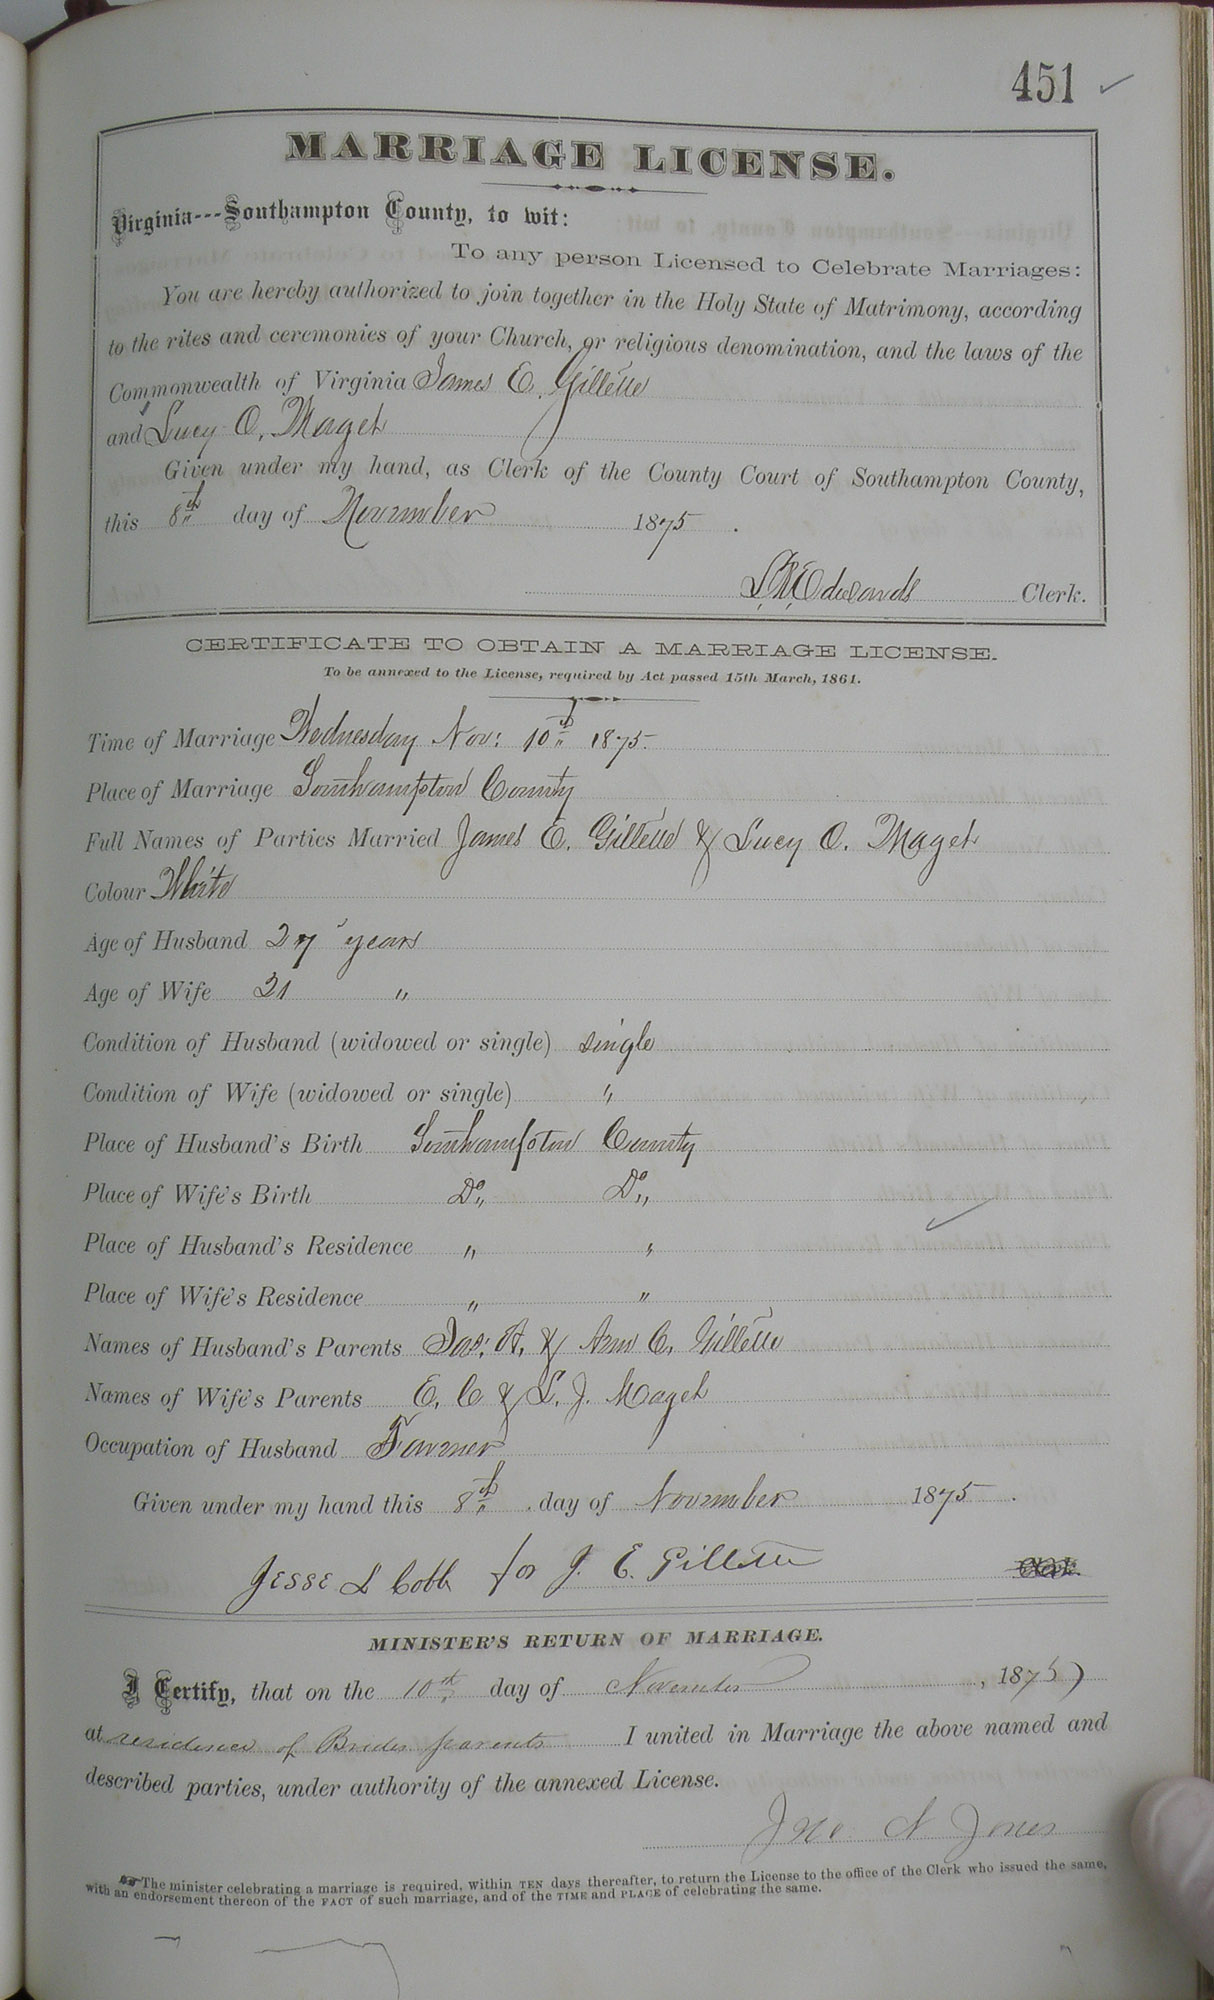 451
MARRIAGE LICENSE.
Virginia---Southampton County, to wit:
To any person Licensed to Celebrate Marriages:
You are hereby authorized to join together in the Holy State of Matrimony, according
to the rites and ceremonies of your Church, or religious denomination, and the laws of the
Commonwealth of Virginia James E. Gillette
and Lucy O. Maget
Given under my hand, as Clerk of the County Court of Southampton County,
this 8th day of November 1875.
L R Edwards Clerk.
CERTIFICATE TO OBTAIN A MARRIAGE LICENSE.
To be annexed to the License, required by Act passed 15th March, 1861.
Time of Marriage Wednesday Nov: 10th 1875.
Place of Marriage Southampton County
Full Names of Parties Married James E. Gillette & Lucy O. Maget
Colour White
Age of Husband 27 years
Age of Wife 21 "
Condition of Husband (widowed or single) single
Condition of Wife (widowed or single) "
Place of Husband's Birth Southampton County
Place of Wife's Birth Do. Do.
Place of Husband's Residence " "
Place of Wife's Residence " "
Names of Husband's Parents Jas: A. & Ann C. Gillette
Names of Wife's Parents E. C & L. J. Maget
Occupation of Husband Farmer
Given under my hand this 8th day of November 1875.
JESSE L Cobb for J. E. Gillette Clerk.
MINISTER'S RETURN OF MARRIAGE.
I Certify, that on the 10th day of November, 1875)
at residence of Brides parents I united in Marriage the above named and
described parties, under authority of the annexed License.
Jno. N Jones
The minister celebrating a marriage is required, within TEN days thereafter, to return the License to the office of the Clerk who issued the same,
with an endorsement thereon of the FACT of such marriage, and of the TIME and PLACE of celebrating the same.